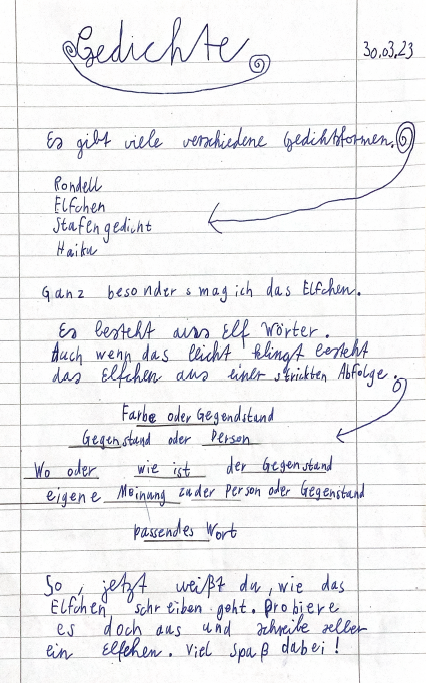 Gedichte
30.03.23
Es gibt viele verschiedene Gedichtsformen.
Rondell
Elfchen
Stafengedicht
Haiku
Ganz besonders mag ich das Elfchen.
Es besteht aus Elf Wörter.
Auch wenn das leicht klingt besteht
das Elfchen aus einer strickten Abfolge.
Farbe oder Gegendstand
Gegenstand oder Person
Wo oder wie ist der Gegenstand
eigene Meinung zuder Person oder Gegenstand
passendes Wort
So, jetzt weißt du, wie das
Elfchen schreiben geht. Probiere
es doch aus und schreibe selber
ein Elfchen. Viel Spaß dabei!